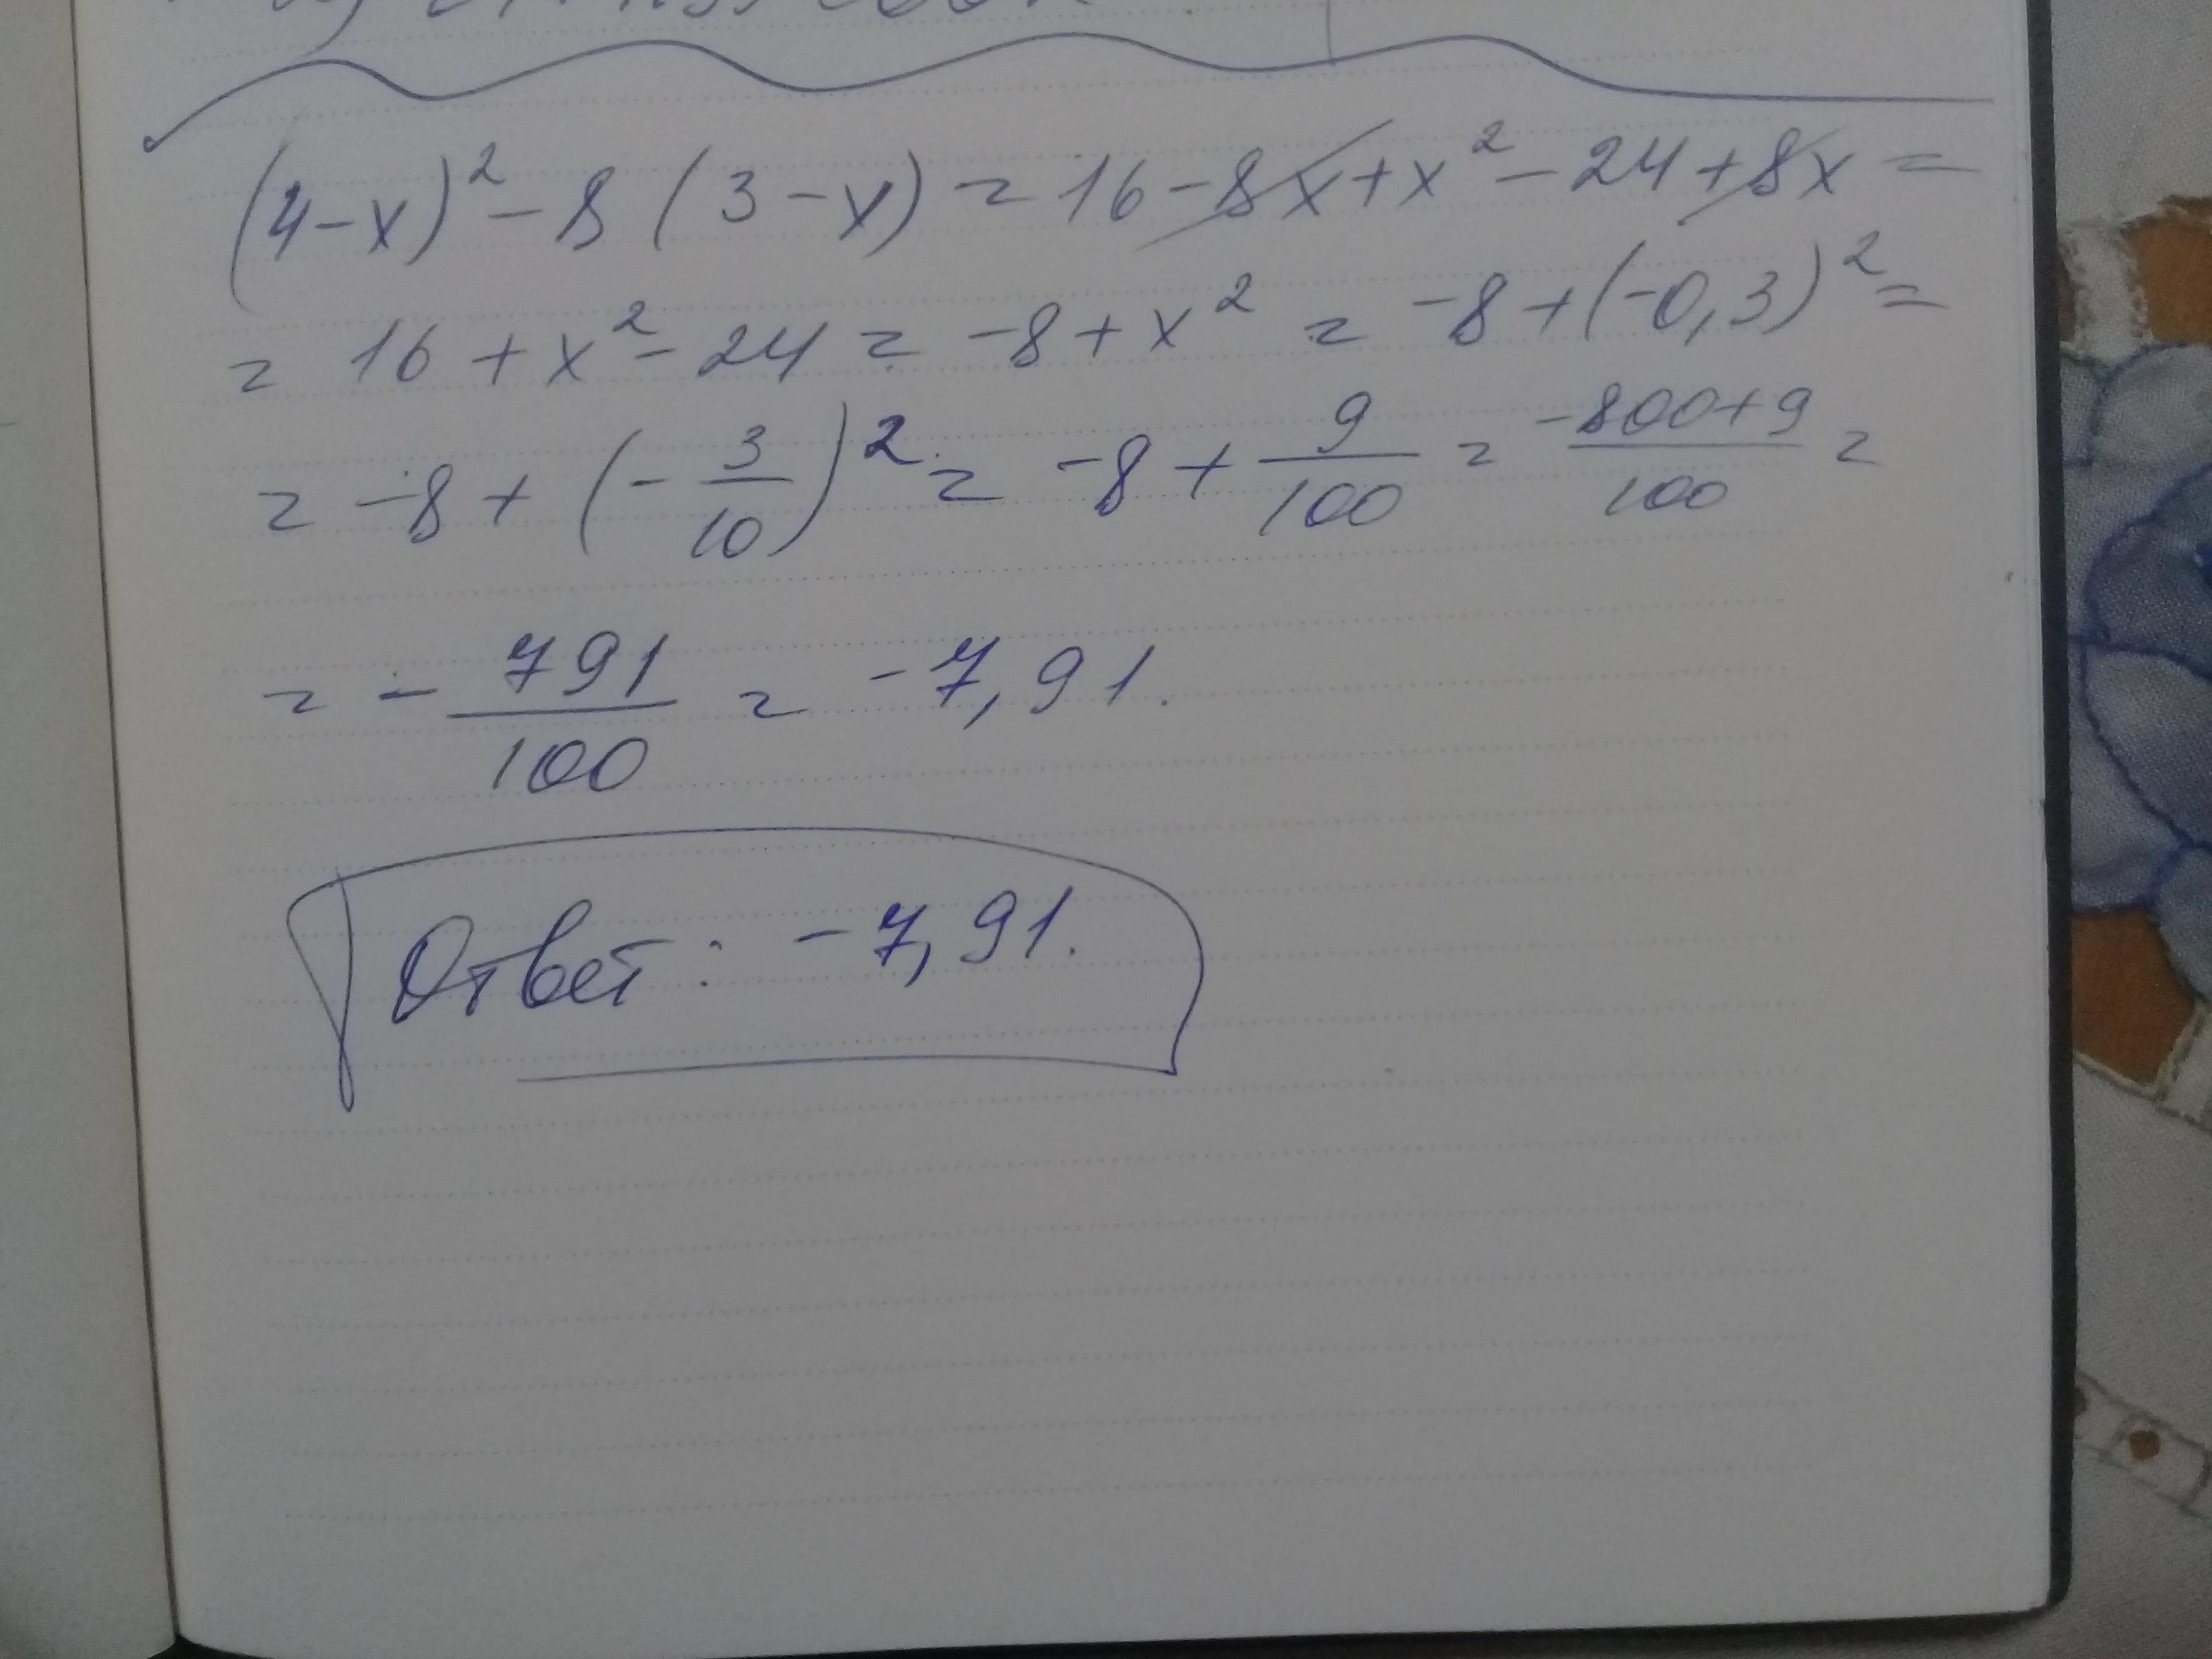 (4-x)² - 8(3-x) = 16 - 8x + x² - 24 + 8x =
= 16 + x² - 24 = -8 + x² = -8 + (-0,3)² =
= -8 + (-3/10)² = -8 + 9/100 = (-800+9)/100 =
= -791/100 = -7,91.
Ответ: -7,91.